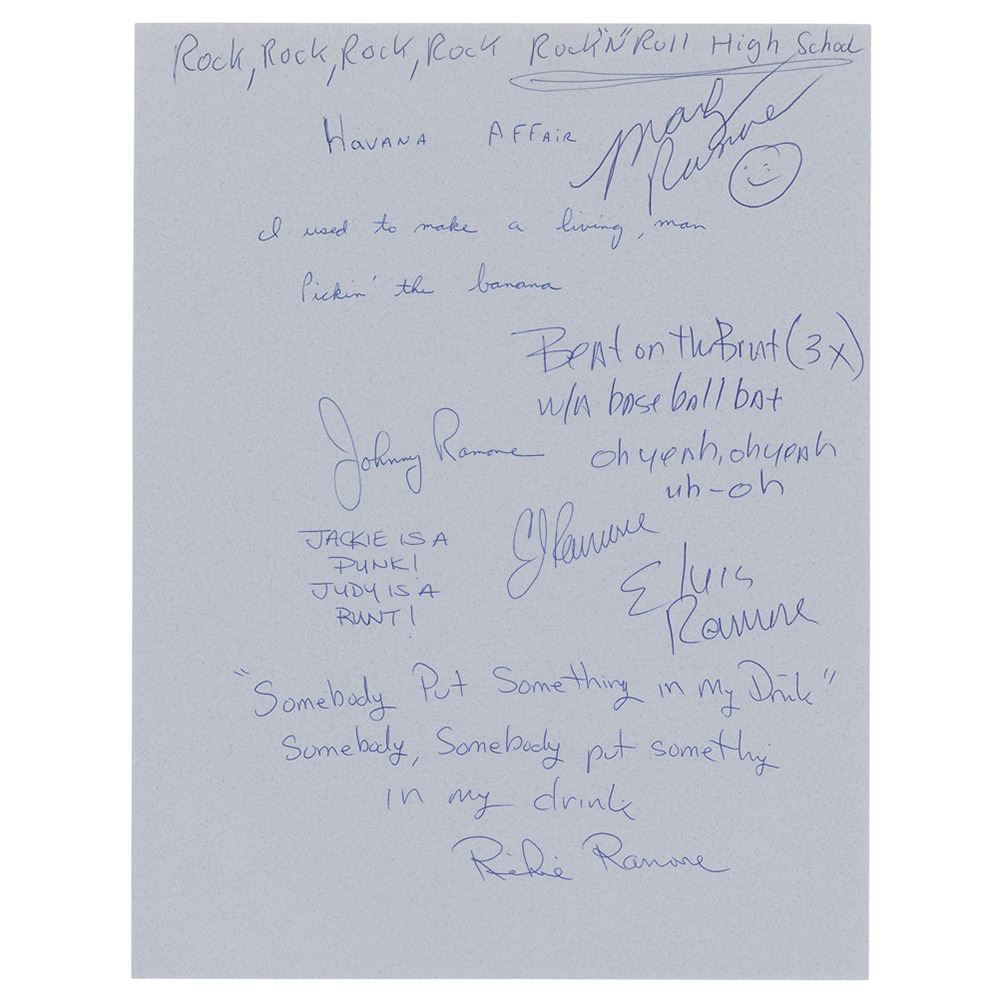 Rock, Rock, Rock, Rock Rock "N" Roll High School
Mark
Ramone
HAVANA AFFAIR
I used to make a living, man
Pickin' the banana
Beat on the Brat (3x)
w/a baseball bat
oh yeah, oh yeah
uh-oh
Johnny Ramone
JACKIE IS A
PUNK!
JUDY IS A
RUNT!
CJ Ramone
Elvis
Ramone
"Somebody Put Something in My Drink"
Somebody, Somebody put somethig
in my drink
Richie Ramone